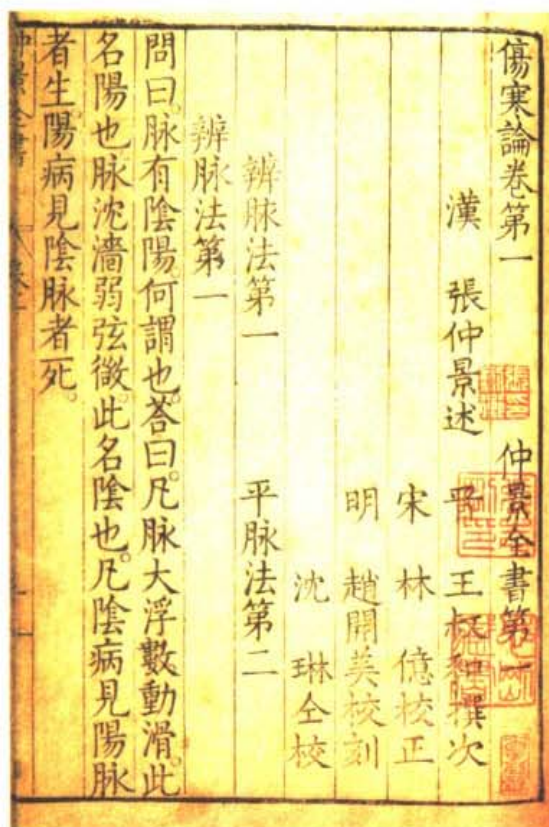 傷寒論卷第一　仲景全書第一
漢　張仲景述　晋　王叔和撰次
宋　林　億校正
明　趙開美校刻
沈　琳仝校
辨脉法第一　平脉法第二
辨脉法第一
問曰。脉有陰陽。何謂也。荅曰。凡脉大浮數動滑。此
名陽也。脉沈濇弱弦微。此名陰也。凡陰病見陽脉
者生。陽病見陰脉者死。
仲景全書